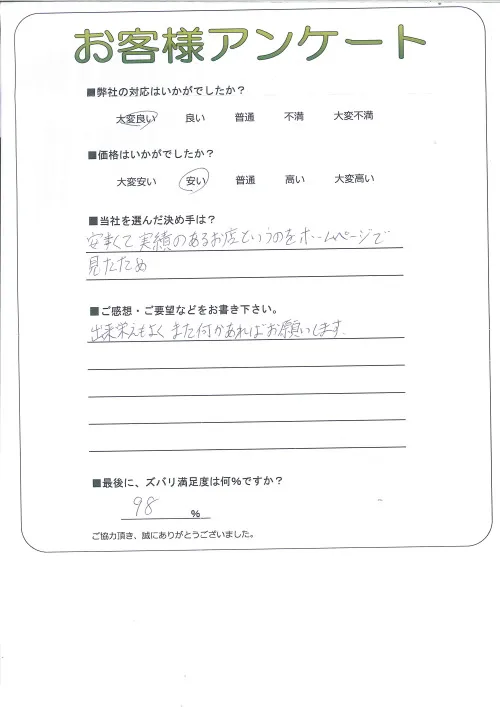 お客様アンケート
■弊社の対応はいかがでしたか?
大変良い 良い 普通 不満 大変不満
■価格はいかがでしたか?
大変安い 安い 普通 高い 大変高い
■当社を選んだ決め手は?
安くて実績のあるお店というのをホームページで
見たため
■ご感想・ご要望などをお書き下さい。
出来栄えもよくまた何かあればお願いします.
■最後に、ズバリ満足度は何%ですか?
98 %
ご協力頂き、誠にありがとうございました。